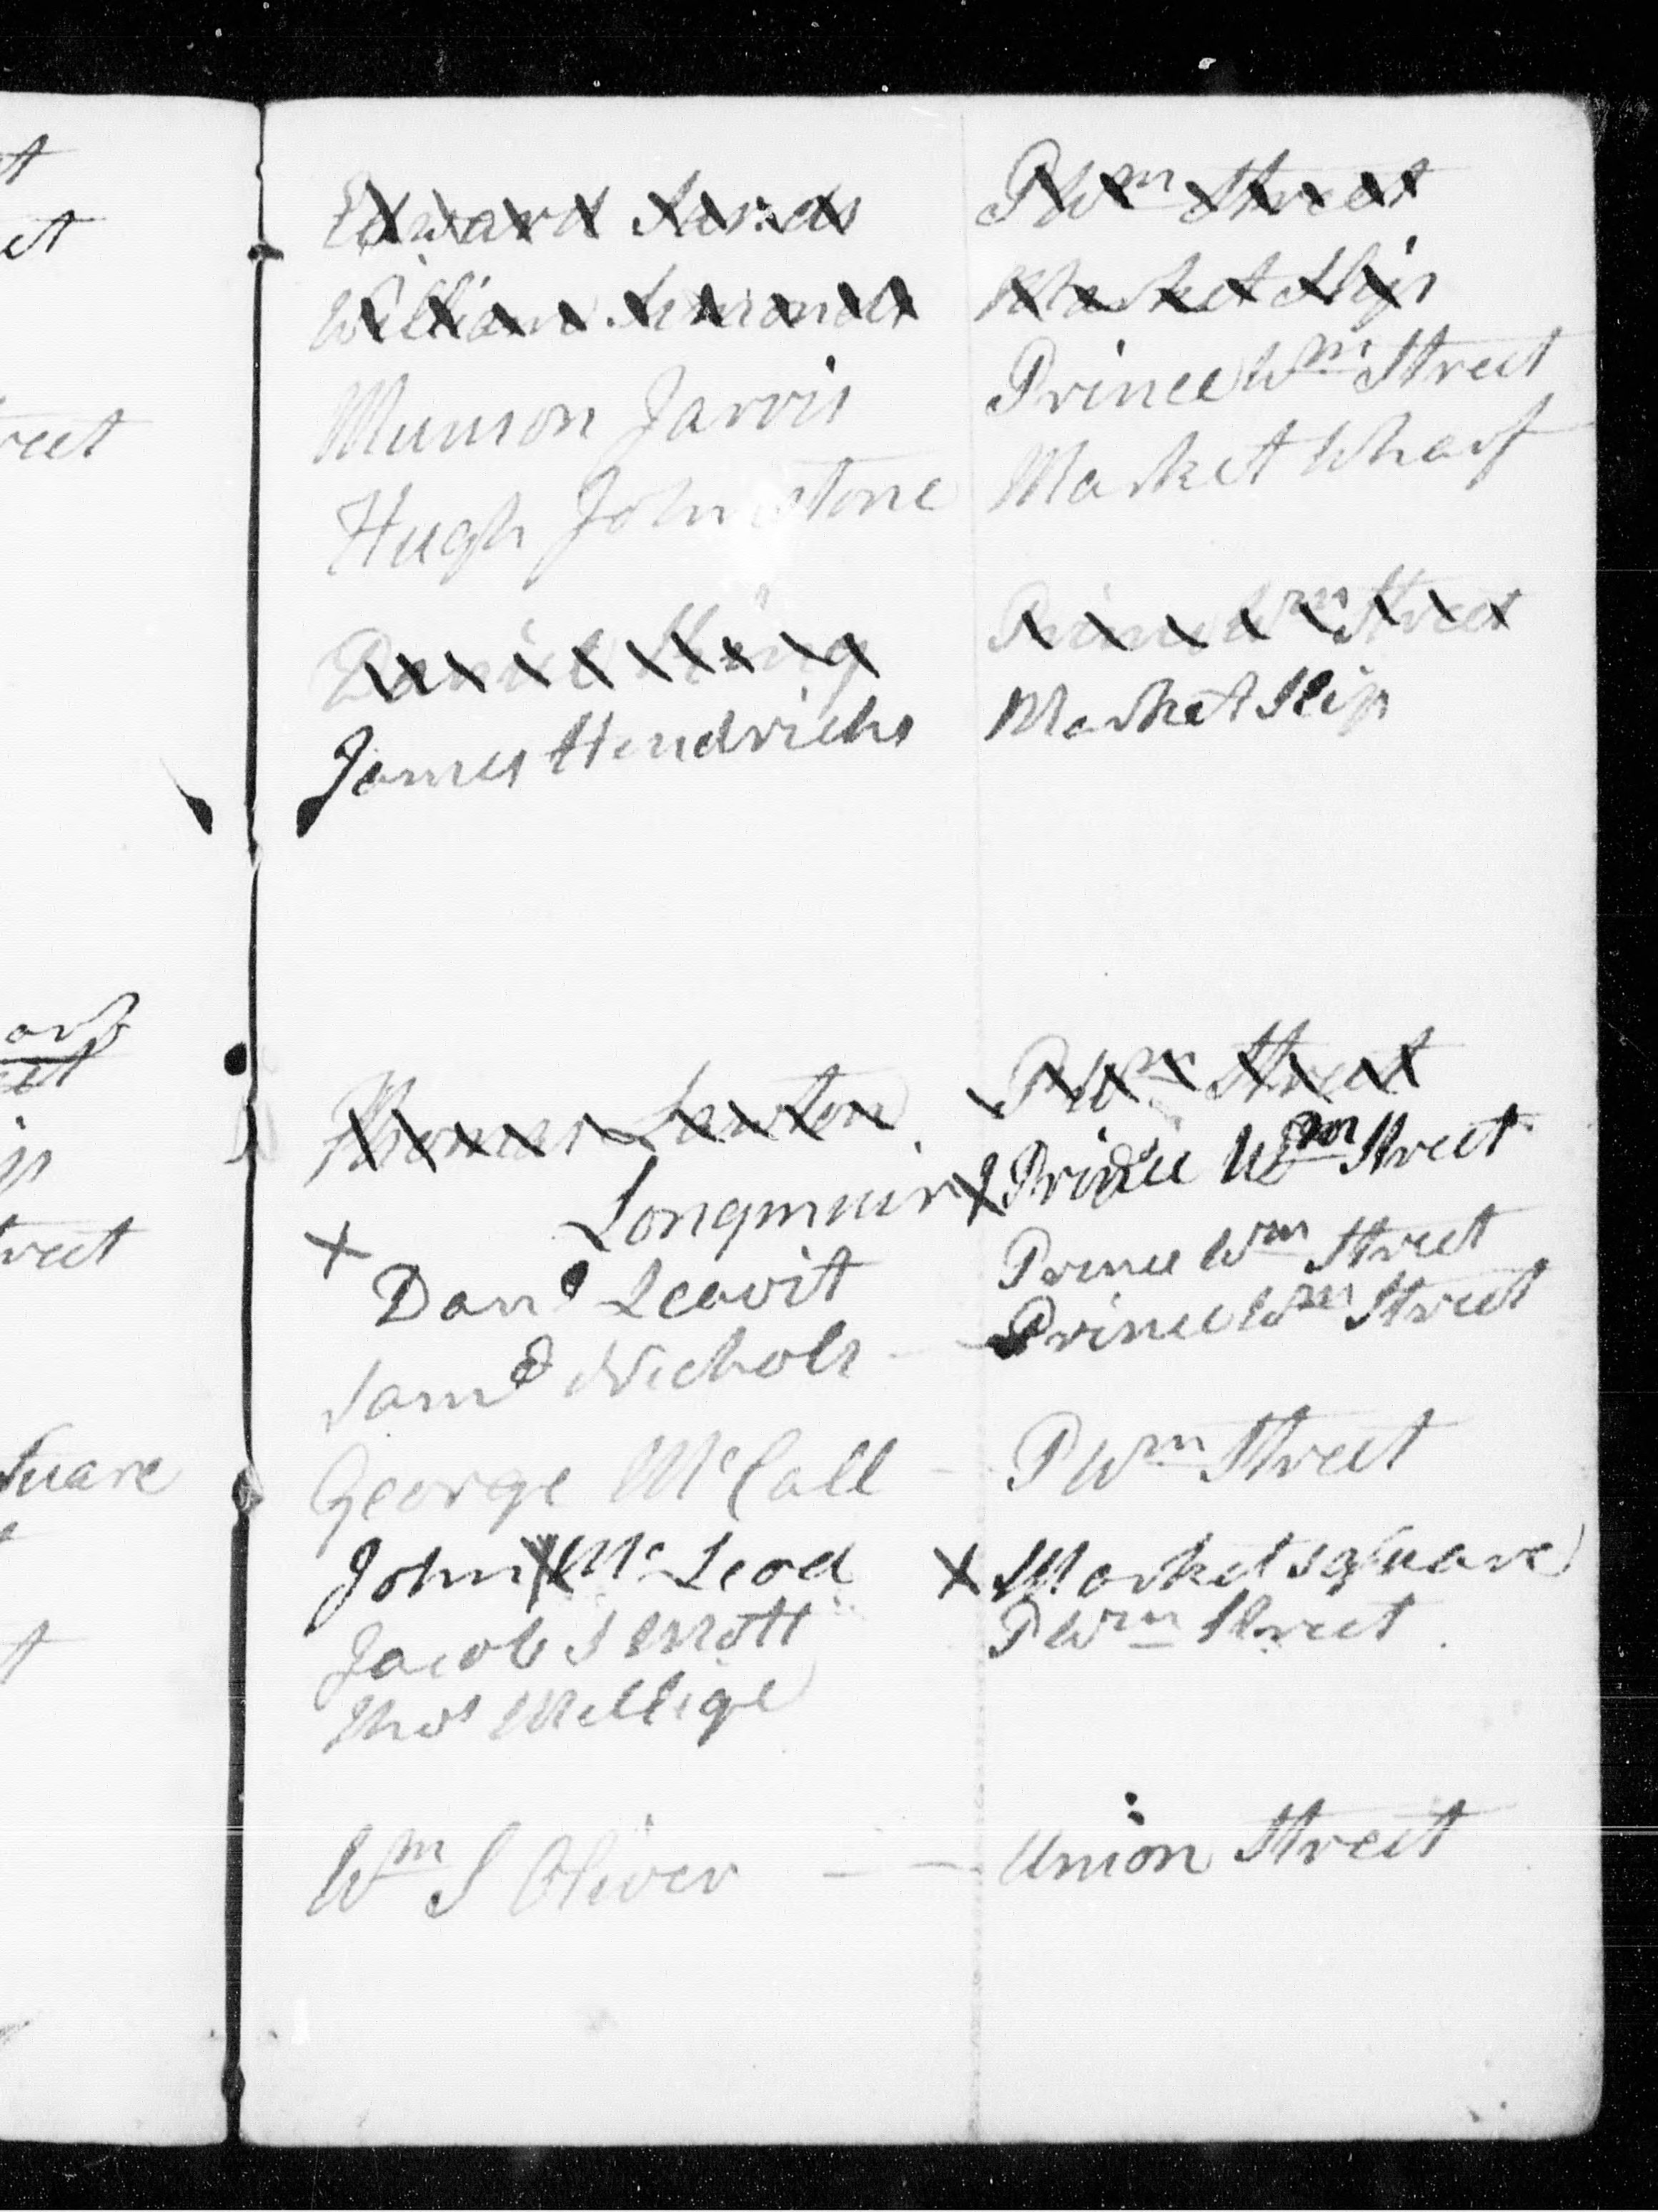 et
reet
uare
reet
Edward P Wm Street
William Market Slip
Munson Jarvis Prince Wm Street
Hugh Johnstone Market Wharf
Daniel King Prince Wm Street
James Hendricks Market Slip
Thomas Lawton P Wm Street
Longmuir X Prince Wm Street
X
Danl Leavit Prince Wm Street
Saml Nichols - Prince Wm Street
George McCall - P Wm Street
John McLeod X Market square
Jacob S Mott P Wm Street
Thos Millige
Wm S Oliver - - Union Street